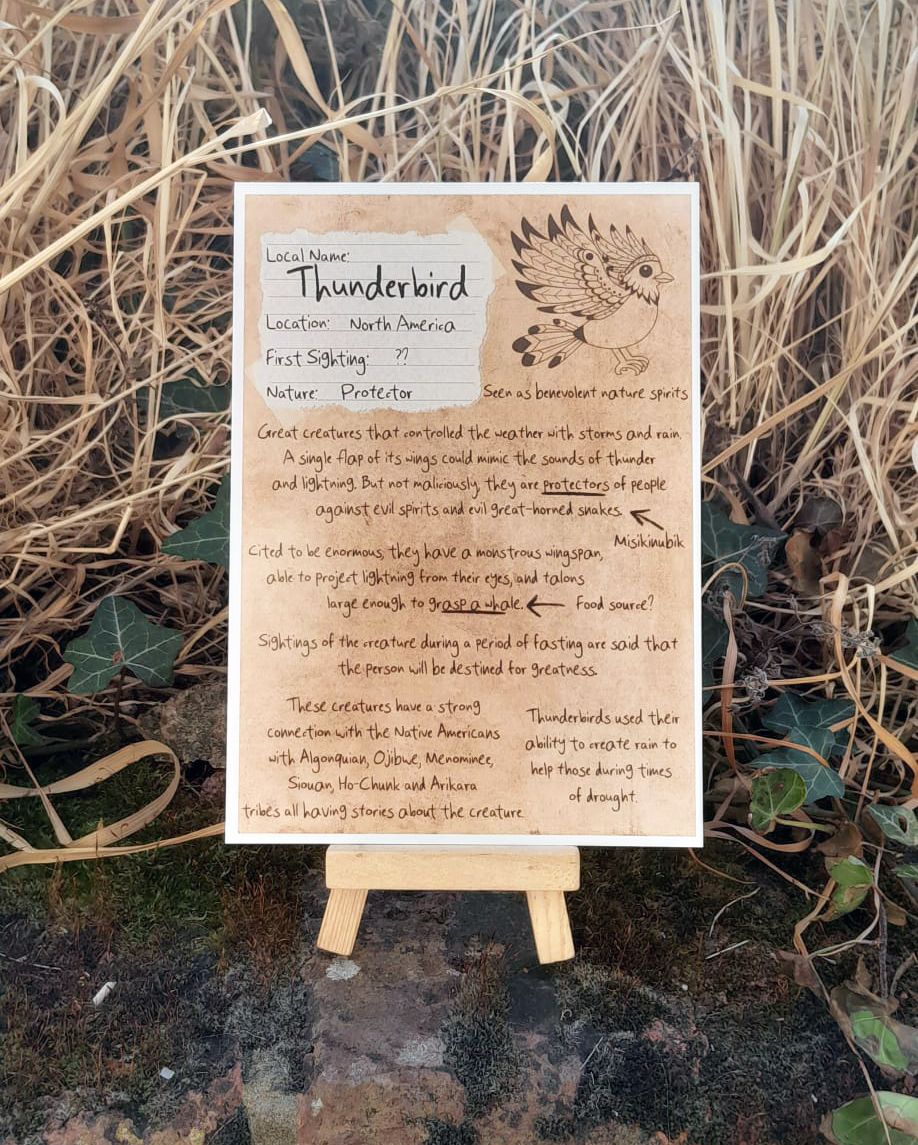 Local Name:
Thunderbird
Location: North America
First Sighting: ??
Nature: Protector
Seen as benevolent nature spirits
Great creatures that controlled the weather with storms and rain.
A single flap of its wings could mimic the sounds of thunder
and lightning. But not maliciously, they are protectors of people
against evil spirits and evil great-horned snakes.
Misikinubik
Cited to be enormous, they have a monstrous wingspan,
able to project lightning from their eyes, and talons
large enough to grasp a whale.
Food source?
Sightings of the creature during a period of fasting are said that
the person will be destined for greatness.
These creatures have a strong
connection with the Native Americans
with Algonquian, Ojibwe, Menominee,
Siouan, Ho-Chunk and Arikara
tribes all having stories about the creature
Thunderbirds used their
ability to create rain to
help those during times
of drought.